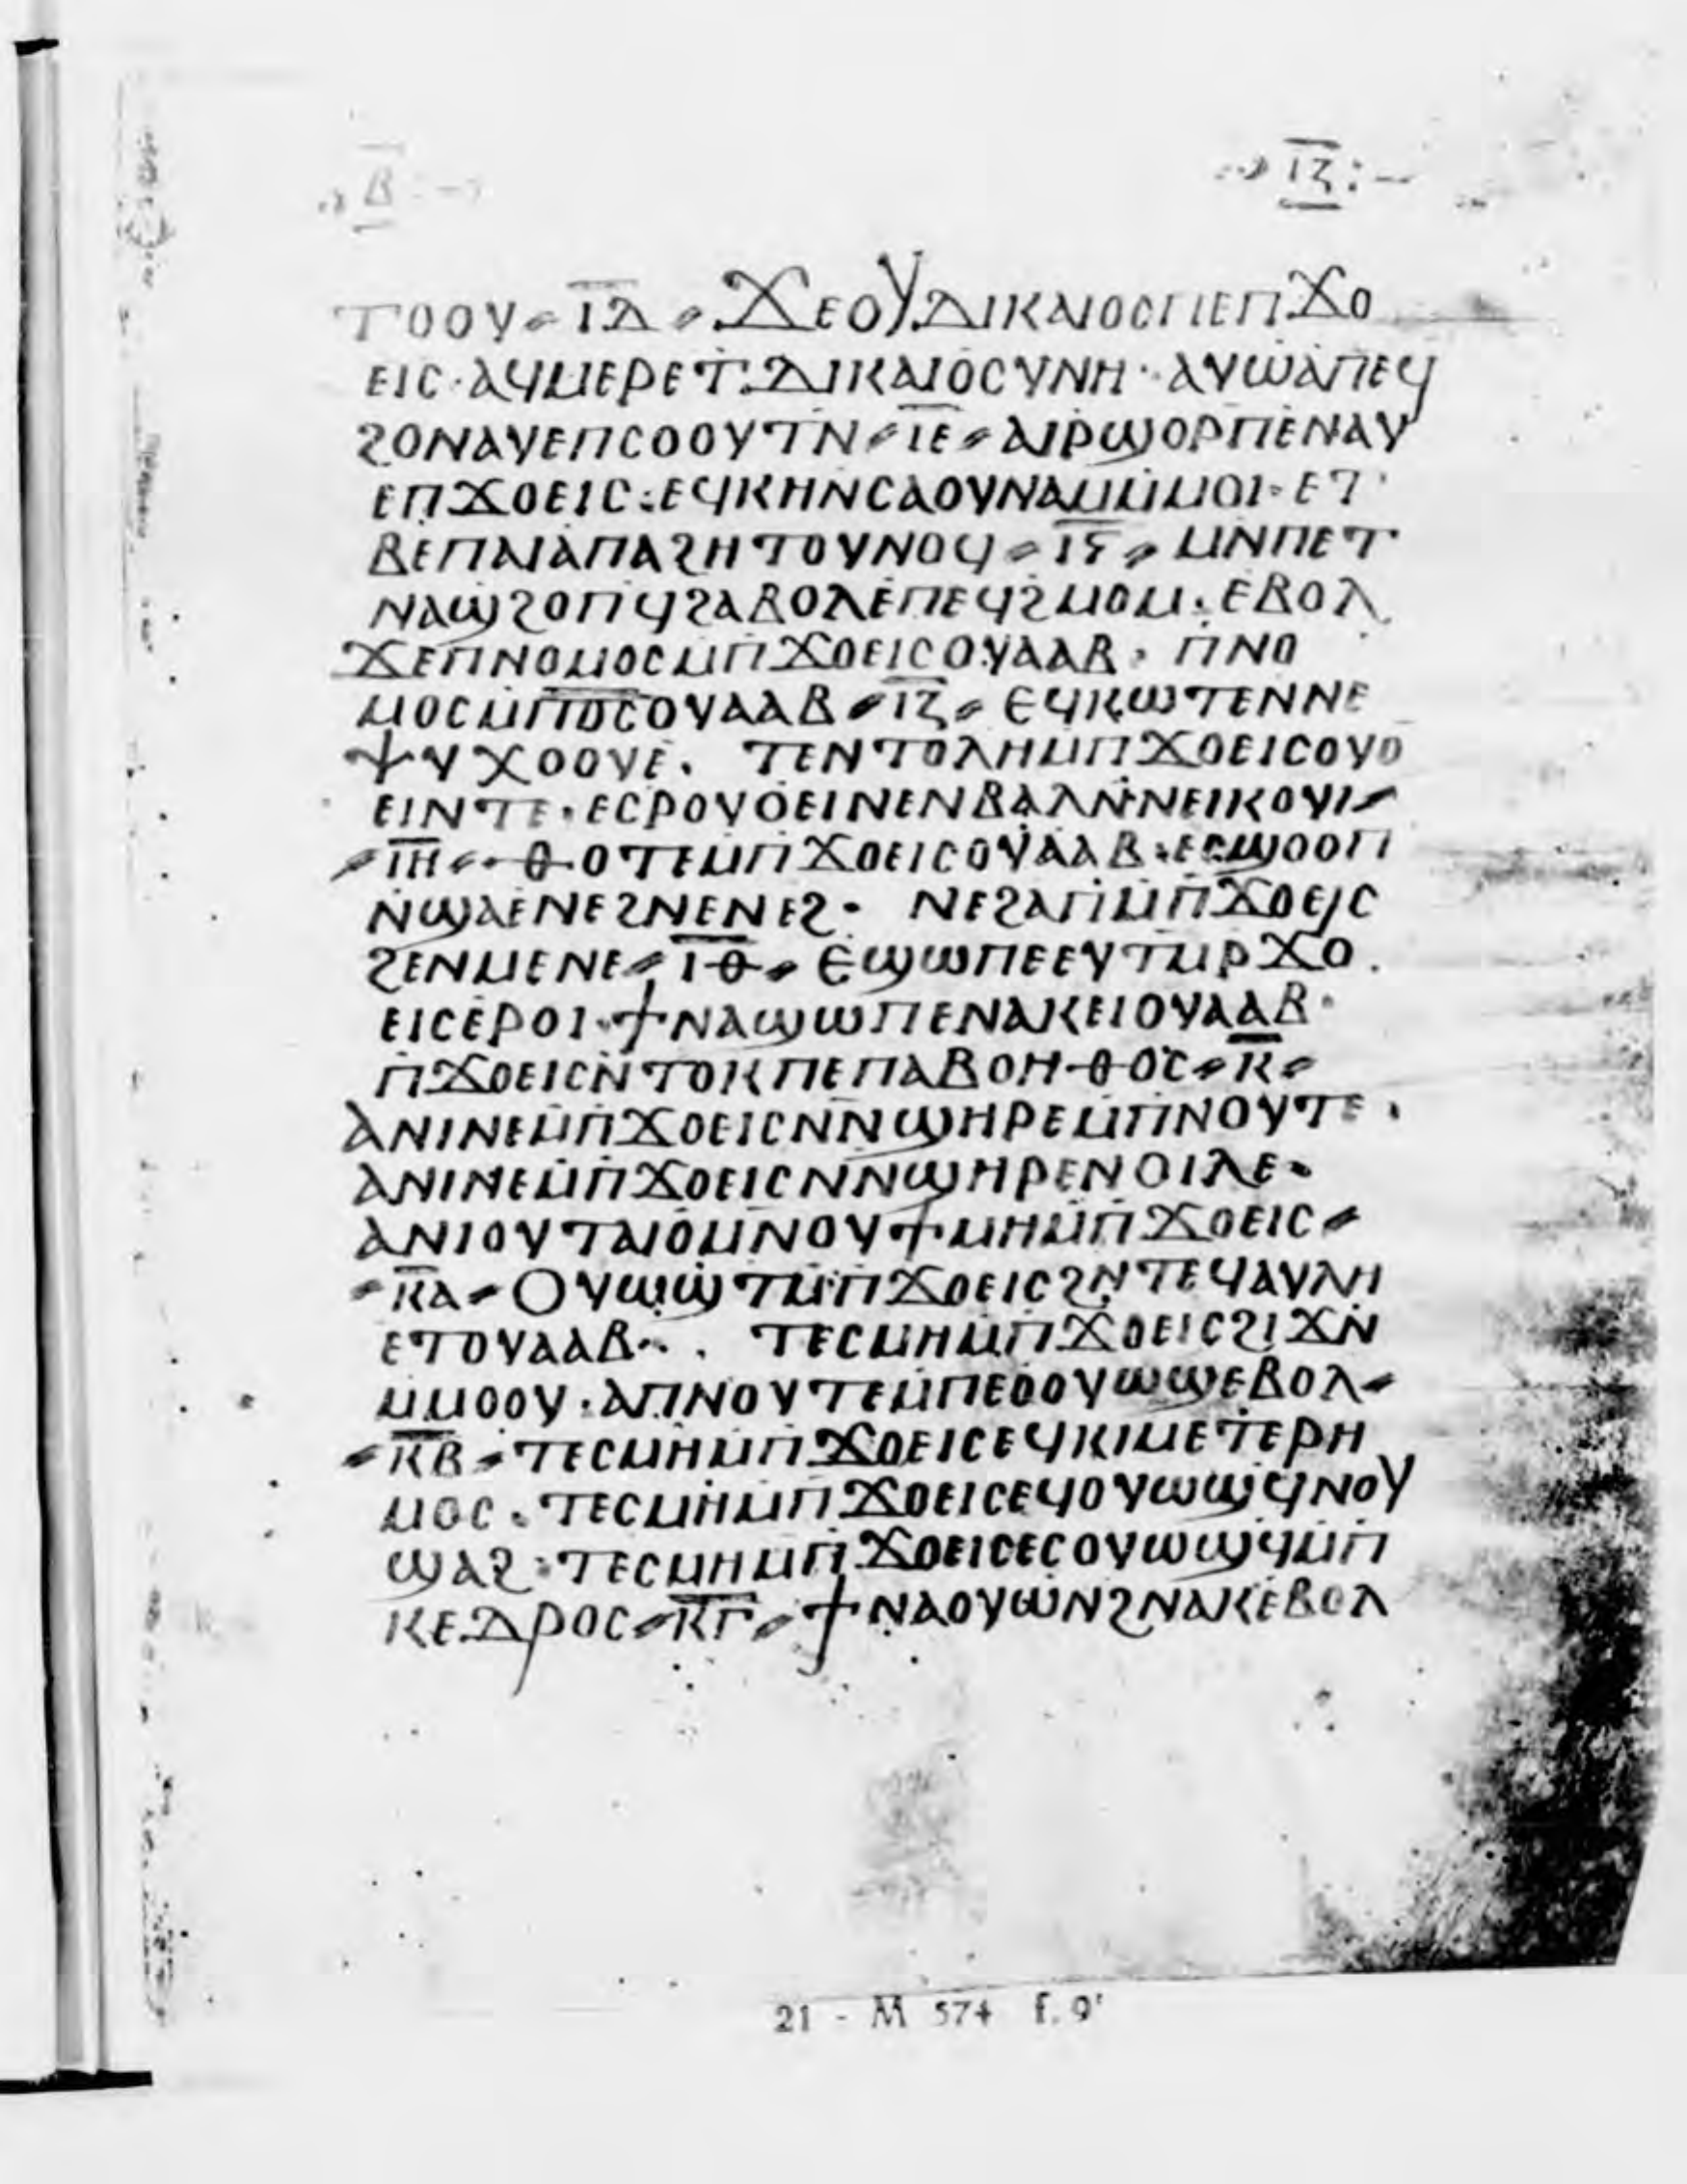 Ⲃ̅ :–
Ⲓ̅Ⲍ̅ :–
ⲦⲞⲞⲨ ⸗ Ⲓ̅Ⲇ̅ ⸗ ϪⲈⲞⲨⲆⲒⲔⲀⲒⲞⲤⲠⲈⲠϪⲞ
ⲈⲒⲤ · ⲀϤⲘⲈⲢⲈⲦⲆⲒⲔⲀⲒⲞⲤⲨⲚⲎ · ⲀⲨⲰⲀⲠⲈϤ
ϨⲞⲚⲀⲨⲈⲠⲤⲞⲞⲨⲦⲚ ⸗ Ⲓ̅Ⲉ̅ ⸗ ⲀⲒⲢϢⲞⲢⲠⲈⲚⲀⲨ
ⲈⲠϪⲞⲈⲒⲤ : ⲈϤⲔⲎⲚⲤⲀⲞⲨⲚⲀⲘⲘⲘⲞⲒ · ⲈⲦ
ⲂⲈⲠⲀⲒⲀⲠⲀϨⲎⲦⲞⲨⲚⲞϤ ⸗ Ⲓ̅Ⲋ̅ ⸗ ⲘⲚⲠⲈⲦ
ⲚⲀϢϨⲞⲠϤϨⲀⲂⲞⲖⲈⲠⲈϤϨⲘⲞⲘ : ⲈⲂⲞⲖ
ϪⲈⲠⲚⲞⲘⲞⲤⲘⲠϪⲞⲈⲒⲤⲞⲨⲀⲀⲂ · ⲠⲚⲞ
ⲘⲞⲤⲘⲠⲞ̅Ⲥ̅ⲞⲨⲀⲀⲂ ⸗ Ⲓ̅Ⲍ̅ ⸗ ⲈϤⲔⲰⲦⲈⲚⲚⲈ
ⲮⲨⲬⲞⲞⲨⲈ · ⲦⲈⲚⲦⲞⲖⲎⲘⲠϪⲞⲈⲒⲤⲞⲨⲞ
ⲈⲒⲚⲦⲈ · ⲈⲤⲢⲞⲨⲞⲈⲒⲚⲈⲚⲂⲀⲖⲚⲚⲈⲒⲔⲞⲨⲒ ⸗
⸗ Ⲓ̅Ⲏ̅ ⸗ ⲐⲞⲦⲈⲘⲠϪⲞⲈⲒⲤⲞⲨⲀⲀⲂ : ⲈⲤϢⲞⲞⲠ
ⲚϢⲀⲈⲚⲈϨⲚⲈⲚⲈϨ · ⲚⲈϨⲀⲠⲘⲠϪⲞⲈⲒⲤ
ϨⲈⲚⲘⲈⲚⲈ ⸗ Ⲓ̅Ⲑ̅ ⸗ ⲈϢⲰⲠⲈⲈⲨⲦⲘⲢϪⲞ
ⲈⲒⲤⲈⲢⲞⲒ · ϮⲚⲀϢⲰⲠⲈⲚⲀⲔⲈⲒⲞⲨⲀⲀⲂ ·
ⲠϪⲞⲈⲒⲤⲚⲦⲞⲔⲠⲈⲠⲀⲂⲞⲎⲐⲞⲤ ⸗ Ⲕ̅ ⸗
ⲀⲚⲒⲚⲈⲘⲠϪⲞⲈⲒⲤⲚⲚϢⲎⲢⲈⲘⲠⲚⲞⲨⲦⲈ ·
ⲀⲚⲒⲚⲈⲘⲠϪⲞⲈⲒⲤⲚⲚϢⲎⲢⲈⲚⲞⲒⲖⲈ ·
ⲀⲚⲒⲞⲨⲦⲀⲒⲞⲘⲚⲞⲨϮⲘⲎⲘⲠϪⲞⲈⲒⲤ ⸗
⸗ Ⲕ̅Ⲁ̅ ⸗ ⲞⲨⲰϢⲦⲘⲠϪⲞⲈⲒⲤϨⲚⲦⲈϤⲀⲨⲖⲎ
ⲈⲦⲞⲨⲀⲀⲂ · . ⲦⲈⲤⲘⲎⲘⲠϪⲞⲈⲒⲤϨⲒϪⲚ
ⲘⲘⲞⲞⲨ · ⲀⲠⲚⲞⲨⲦⲈⲘⲠⲈⲞⲞⲨⲰϢⲈⲂⲞⲖ ⸗
⸗ Ⲕ̅Ⲃ̅ ⸗ ⲦⲈⲤⲘⲎⲘⲠϪⲞⲈⲒⲤⲈϤⲔⲒⲘⲈⲦⲈⲢⲎ
ⲘⲞⲤ · ⲦⲈⲤⲘⲎⲘⲠϪⲞⲈⲒⲤⲈϤⲞⲨⲰϢϤⲚⲞⲨ
ϢⲀϨ : ⲦⲈⲤⲘⲎⲘⲠϪⲞⲈⲒⲤⲈⲤⲞⲨⲰϢϤⲘⲠ
ⲔⲈⲆⲢⲞⲤ ⸗ Ⲕ̅Ⲅ̅ ⸗ ϮⲚⲀⲞⲨⲰⲚϨⲚⲀⲔⲈⲂⲞⲖ
21 - M 574 f. 9ʳ